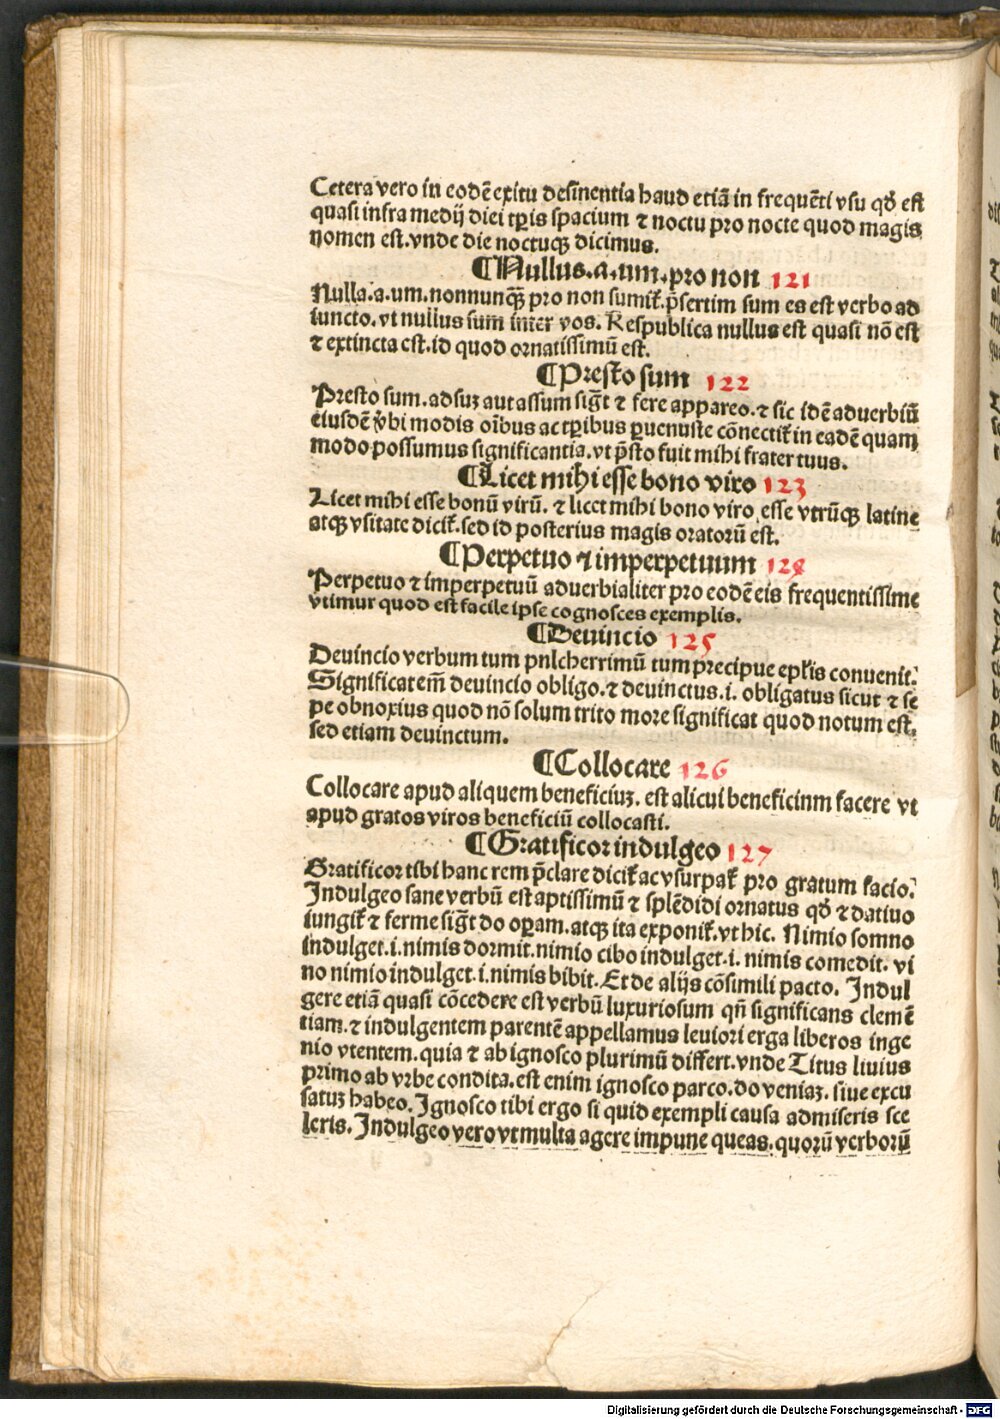 Cetera vero in eodē exitu desinentia haud etiā in frequēti vsu qđ est
quasi infra medij diei tꝑis spacium ⁊ noctu pro nocte quod magis
nomen est. vnde die noctuqꝫ dicimus.
¶Nullus.a.um.pro non 121
Nulla.a.um.nonnunqꝫ pro non sumit̃. p̄sertim sum es est verbo ad
iuncto. vt nullus sum inter vos. Respublica nullus est quasi nō est
⁊ extincta est. id quod ornatissimū est.
¶Presto sum 122
Presto sum. adsuꝫ aut assum sigt̄ ⁊ fere appareo. ⁊ sic idē aduerbiū
eiusdē v̄bi modis oībus ac tꝑibus ꝑuenuste cōnectit̃ in eadē quam
modo possumus significantia. vt p̄sto fuit mihi frater tuus.
¶Licet mihi esse bono viro 123
Licet mihi esse bonū virū. ⁊ licet mihi bono viro esse vtrūqꝫ latine
atqꝫ vsitate dicit̃. sed id posterius magis oratorū est.
¶Perpetuo ⁊ imperpetuum 124
Perpetuo ⁊ imperpetuū aduerbialiter pro eodē eis frequentissime
vtimur quod est facile ipse cognosces exemplis.
¶Deuincio 125
Deuincio verbum tum pnlcherrimū tum precipue epl̄is conuenit.
Significat em̄ deuincio obligo. ⁊ deuinctus .i. obligatus sicut ⁊ se
pe obnoxius quod nō solum trito more significat quod notum est.
sed etiam deuinctum.
¶Collocare 126
Collocare apud aliquem beneficiuꝫ. est alicui beneficinm facere vt
apud gratos viros beneficiū collocasti.
¶Gratificor indulgeo 127
Gratificor tibi hanc rem p̄clare dicit̃ ac vsurpat̃ pro gratum facio.
Indulgeo sane verbū est aptissimū ⁊ splēdidi ornatus qđ ⁊ datiuo
iungit̃ ⁊ ferme sigt̄ do oꝑam. atqꝫ ita exponit̃. vt hic. Nimio somno
indulget .i. nimis dormit. nimio cibo indulget .i. nimis comedit. vi
no nimio indulget .i. nimis bibit. Et de alijs cōsimili pacto. Indul
gere etiā quasi cōcedere est verbū luxuriosum qn̄ significans clemē
tiam. ⁊ indulgentem parentē appellamus leuiori erga liberos inge
nio vtentem. quia ⁊ ab ignosco plurimū differt. vnde Titus liuius
primo ab vrbe condita. est enim ignosco parco. do veniaꝫ. siue excu
satuꝫ habeo. Ignosco tibi ergo si quid exempli causa admiseris sce
leris. Indulgeo vero vt multa agere impune queas. quorū verborū
Digitalisierung gefördert durch die Deutsche Forschungsgemeinschaft - DFG